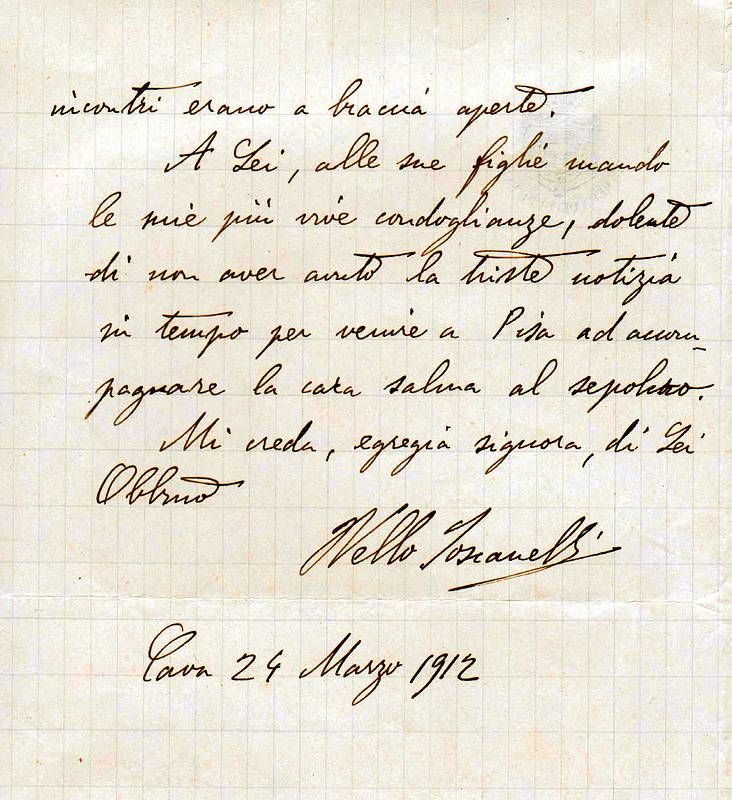 incontri erano a braccia aperte.
A Lei, alle sue figlie mando
le mie più vive condoglianze, dolente
di non aver avuto la triste notizia
in tempo per venire a Pisa ad accom
pagnare la cara salma al sepolcro.
Mi creda, egregia signora, di Lei
Obbmo
Nello Toscanelli
Cava 24 Marzo 1912